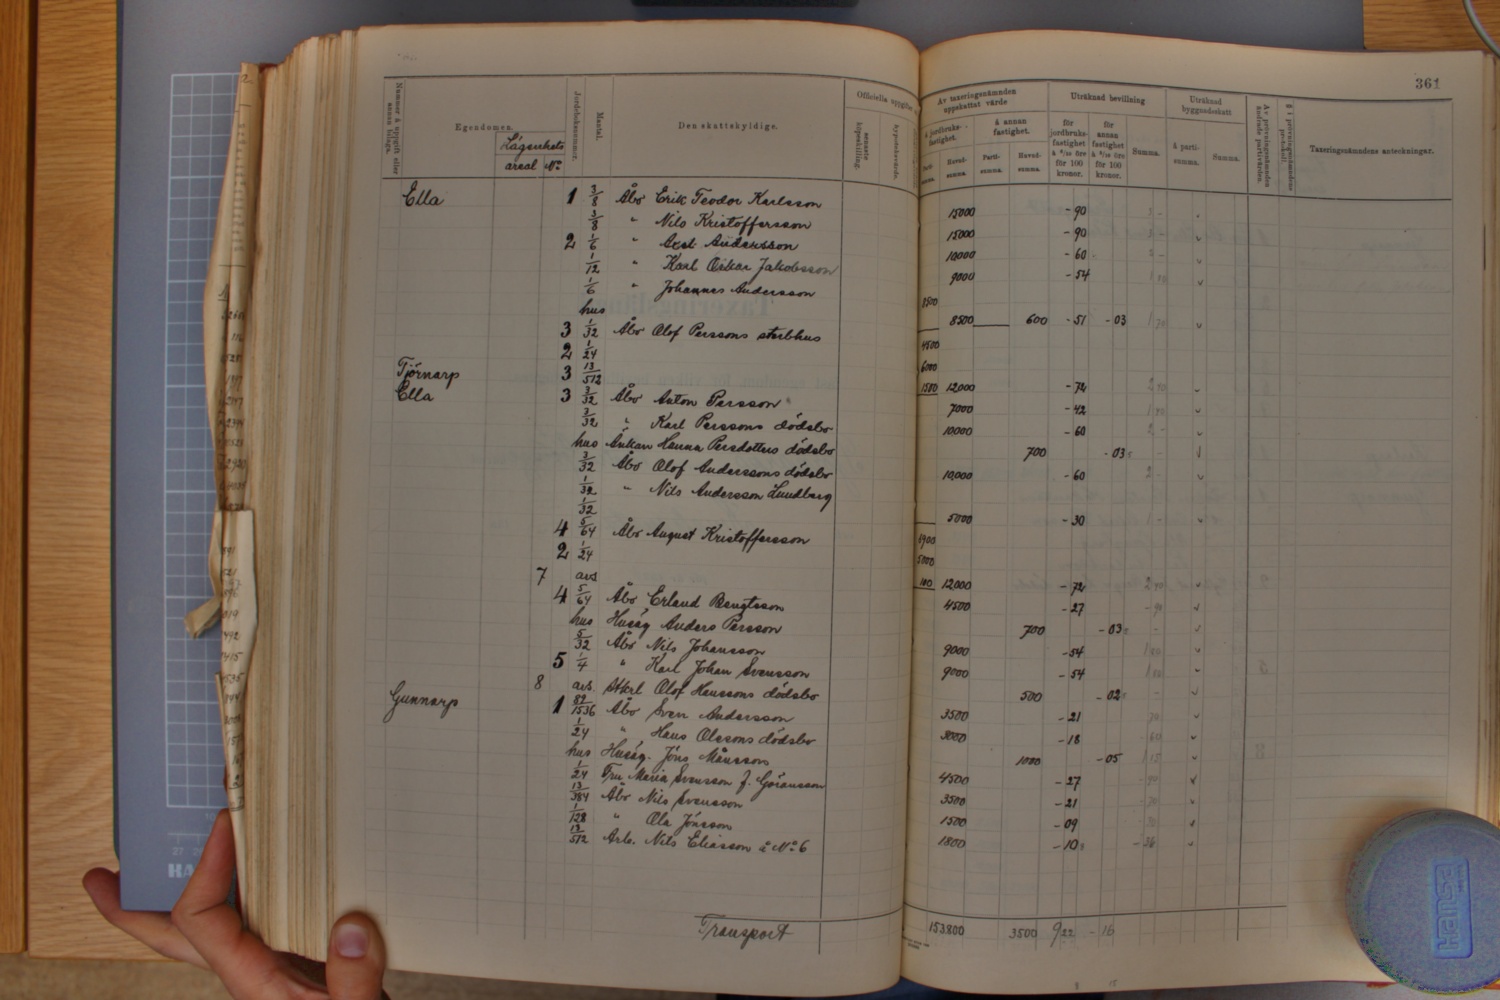 361
Nummer å uppgift eller annan bilaga.
Egendomen.
Lägenhets
areal Nr
Jordeboksnummer.
Mantal.
Den skattskyldige.
Officiella uppgifter
senaste köpeskilling.
hypoteksvärde.
Av taxeringsnämnden uppskattat värde
å jordbruksfastighet.
å annan fastighet.
Parti-summa.
Huvud-summa.
Parti-summa.
Huvud-summa.
Uträknad bevillning
för jordbruksfastighet à 6/10 öre för 100 kronor.
för annan fastighet à 5/10 öre för 100 kronor.
Summa.
Uträknad byggnadsskatt
å parti-summa.
Summa.
Av prövningsnämnden ändrade partivärden.
§ i prövningsnämndens protokoll.
Taxeringsnämndens anteckningar.
Ella 1 3/8 Åbo Erik Teodor Karlsson 15000 - 90
3/8 " Nils Kristoffersson 15000 - 90
2 1/6 " Axel Andersson 10000 - 60
1/12 " Karl Oskar Jakobsson 9000 - 54
1/6 " Johannes Andersson 8500
hus 8500 600 - 51 - 03
3 1/32 Åbo Olof Perssons sterbhus 4500
2 1/24 6000
Tjörnarp 3 13/512 1500 12000 - 72
Ella 3 3/32 Åbo Anton Persson 7000 - 42
3/32 " Karl Perssons dödsbo 10000 - 60
hus Änkan Hanna Persdotters dödsbo 700 - 03
3/32 Åbo Olof Anderssons dödsbo 10,000 - 60
1/32 " Nils Andersson Lundberg
1/32 5000 - 30
4 5/64 Åbo August Kristoffersson 6900
2 1/24 5000
7 avs 100 12000 - 72
4 5/64 Åbo Erland Bengtsson 4500 - 27
hus Husäg Anders Persson 700 - 03
5/32 Åbo Nils Johansson 9000 - 54
5 1/4 " Karl Johan Svensson 9000 - 54
8 avs. Olof Hanssons dödsbo 500 - 02
Gunnarp 1 89/1536 Åbo Sven Andersson 3500 - 21
1/24 " Hans Olssons dödsbo 3000 - 18
hus Husäg. Jöns Månsson 1000 - 05
1/24 Fru Maria Svensson f. Göransson 4500 - 27
13/384 Åbo Nils Svensson 3500 - 21
1/128 " Ola Jönsson 1500 - 09
13/512 Arb. Nils Eliasson å No 6 1800 - 10
Transport 153800 3500 9 22 - 16
Hansa